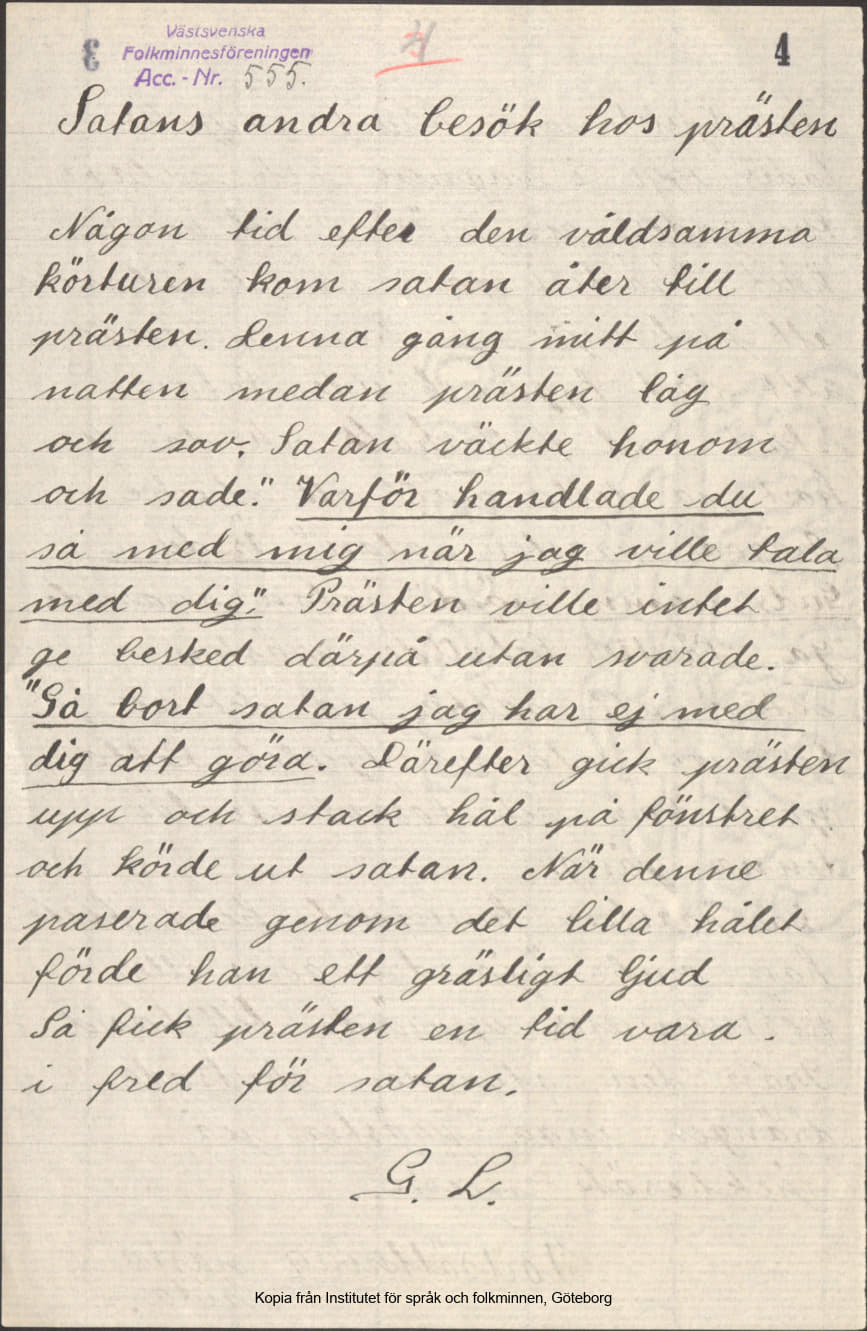 Västsvenska
Folkminnesföreningen
Acc.-Nr. 555.
4
Satans andra besök hos prästen
Någon tid efter den våldsamma
körturen kom satan åter till
prästen. Denna gång mitt på
natten medan prästen låg
och sov. Satan väckte honom
och sade." Varför handlade du
så med mig när jag ville tala
med dig". Prästen ville intet
ge besked därpå utan svarade.
"Gå bort satan jag har ej med
dig att göra. Därefter gick prästen
upp och stack hål på fönstret
och körde ut satan. När denne
paserade genom det lilla hålet
förde han ett gräsligt ljud
Så fick prästen en tid vara.
i fred för satan.
G. L.
Kopia från Institutet för språk och folkminnen, Göteborg